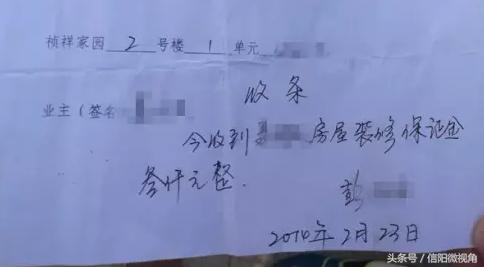 祯祥家园 2 号楼 1 单元
收条
业主(签名
今收到 房屋装修保证金
叁仟元整.
彭
2014年2月23日
头条号/信阳微视角